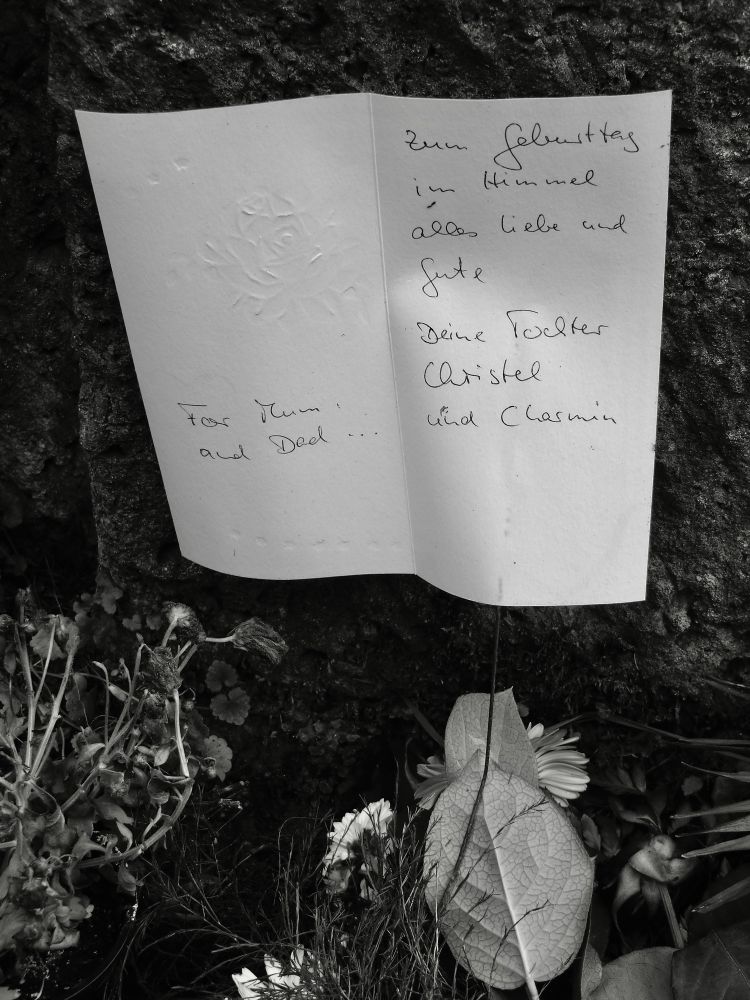 For Mum
and Dad ...
Zum Geburttag
im Himmel
alles liebe und
gute
Deine Tochter
Christel
und Charmin